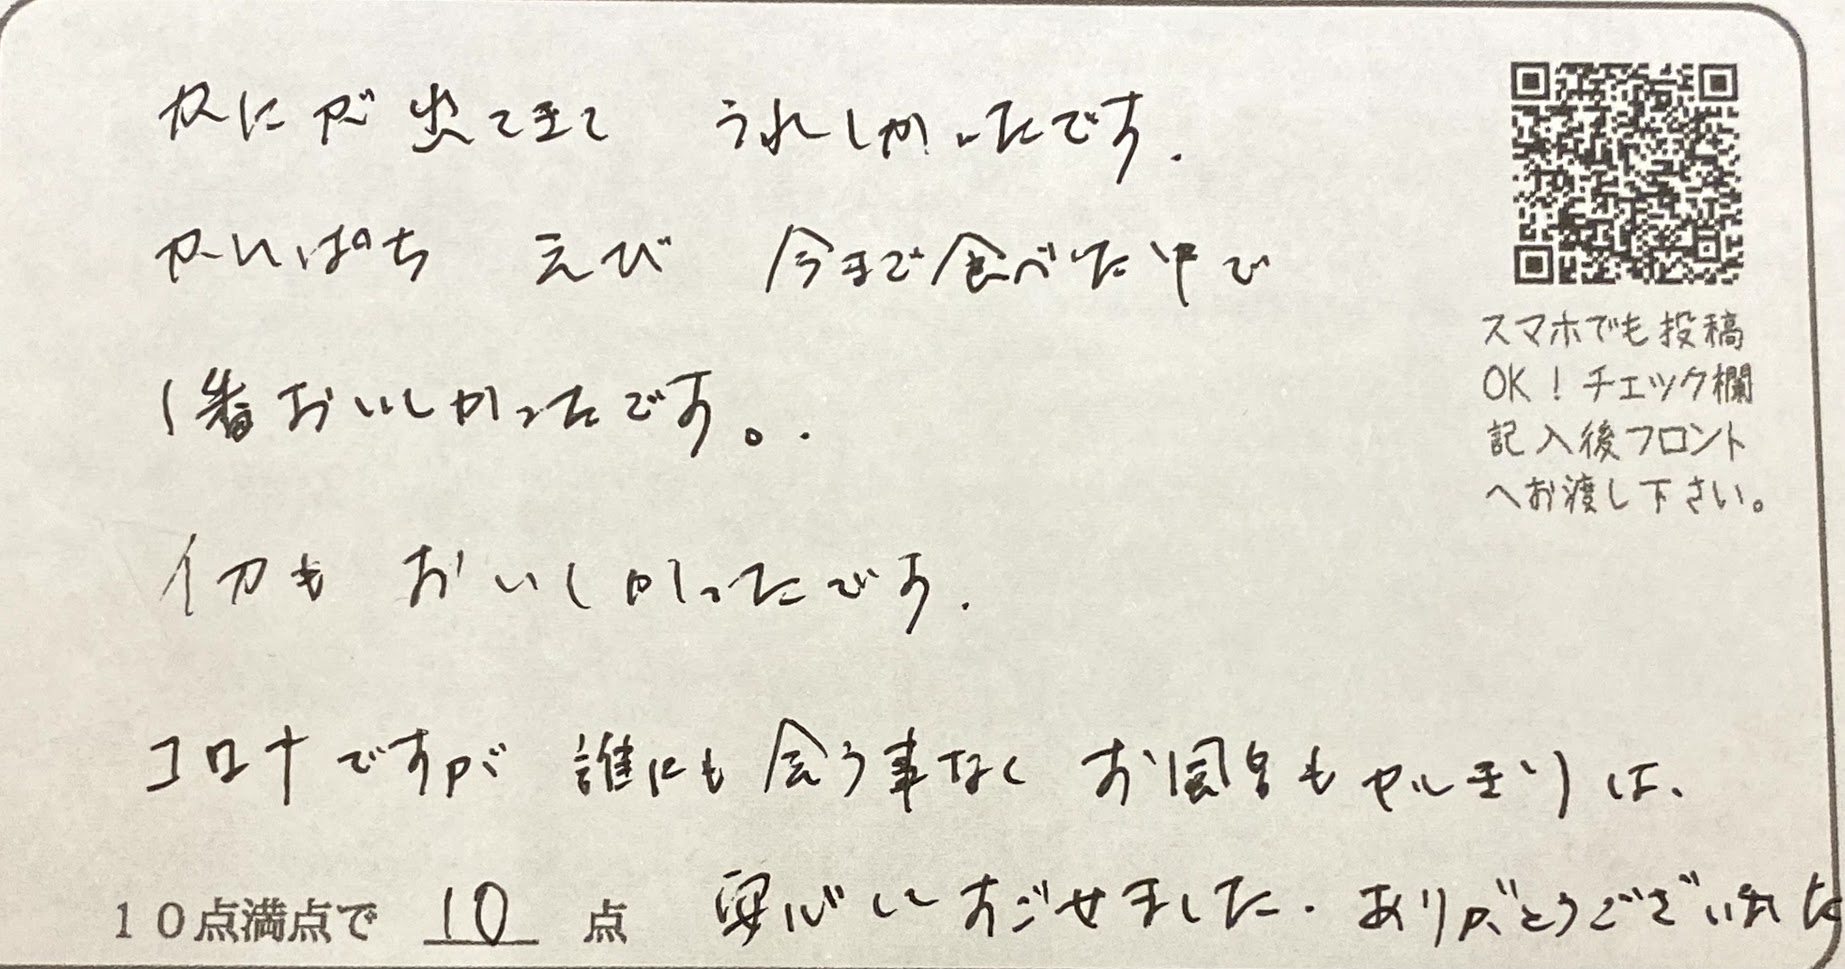 かにが出てきて うれしかったです.
かんぱち えび 今まで食べた中で
1番おいしかったです。.
イカも おいしかったです.
コロナですが 誰にも会う事なく お風呂も かしきりは、
安心して すごせました. ありがとうございました
10点満点で 10 点
スマホでも投稿
OK！チェック欄
記入後フロント
へお渡し下さい。